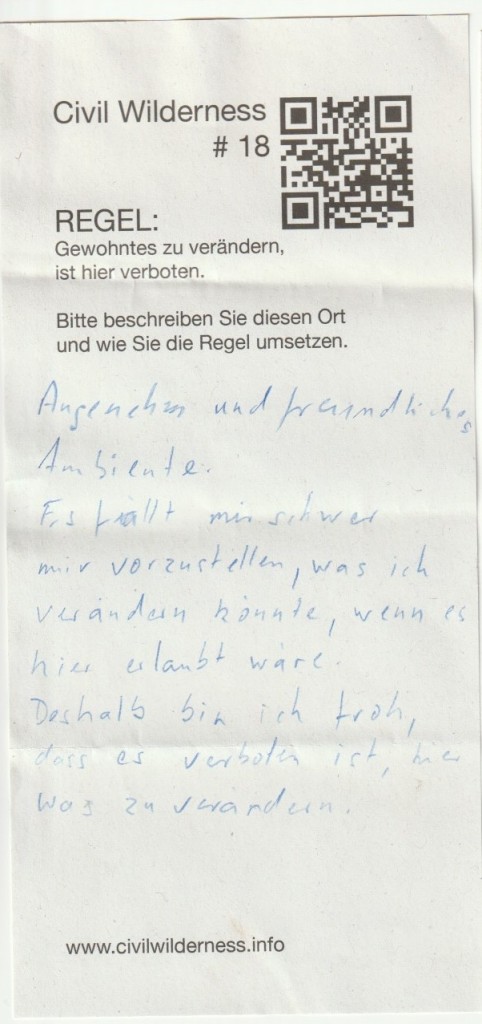 Civil Wilderness
# 18
REGEL:
Gewohntes zu verändern,
ist hier verboten.
Bitte beschreiben Sie diesen Ort
und wie Sie die Regel umsetzen.
Angenehm und freundliches
Ambiente.
Es fällt mir schwer
mir vorzustellen, was ich
verändern könnte, wenn es
hier erlaubt wäre.
Deshalb bin ich froh,
dass es verboten ist, hier
was zu verändern.
www.civilwilderness.info